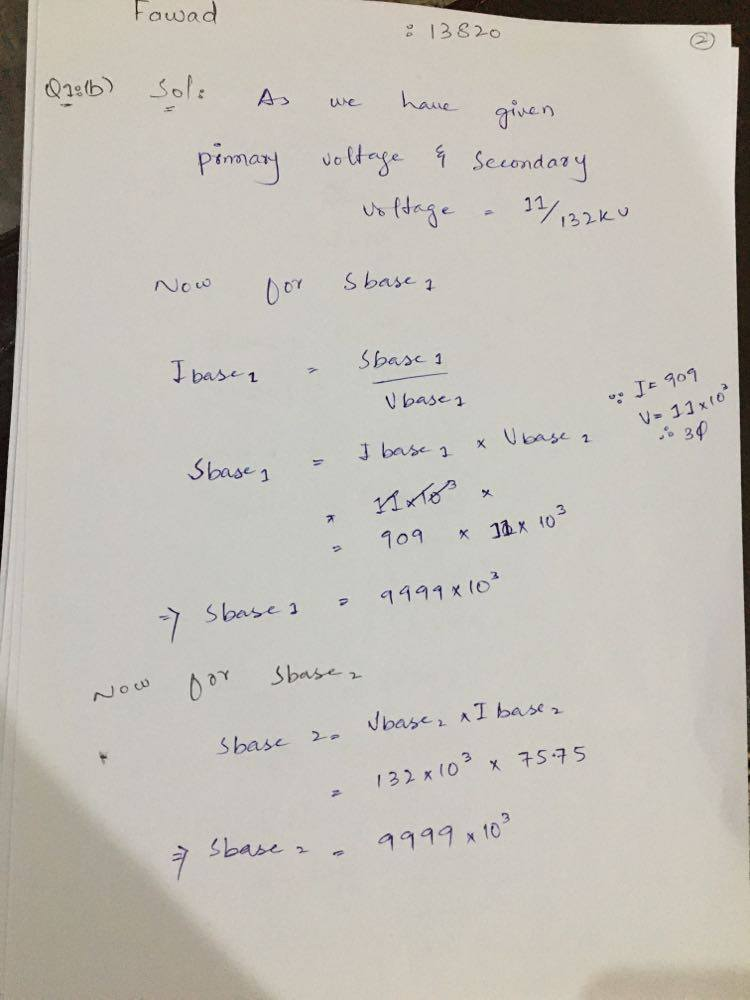 Fawad
: 13820
2
Q1:(b) Sol: As we have given
primary voltage & Secondary
voltage = 11/132KV
Now for Sbase1
Ibase1 = Sbase1 / Vbase1
∵ I = 909
V = 11×10³
∴ 3φ
Sbase1 = Ibase1 × Vbase2
= 11×10³ ×
= 909 × 11×10³
⇒ Sbase1 = 9999×10³
Now for Sbase2
Sbase2 = Vbase2 × Ibase2
= 132×10³ × 75.75
⇒ Sbase2 = 9999×10³